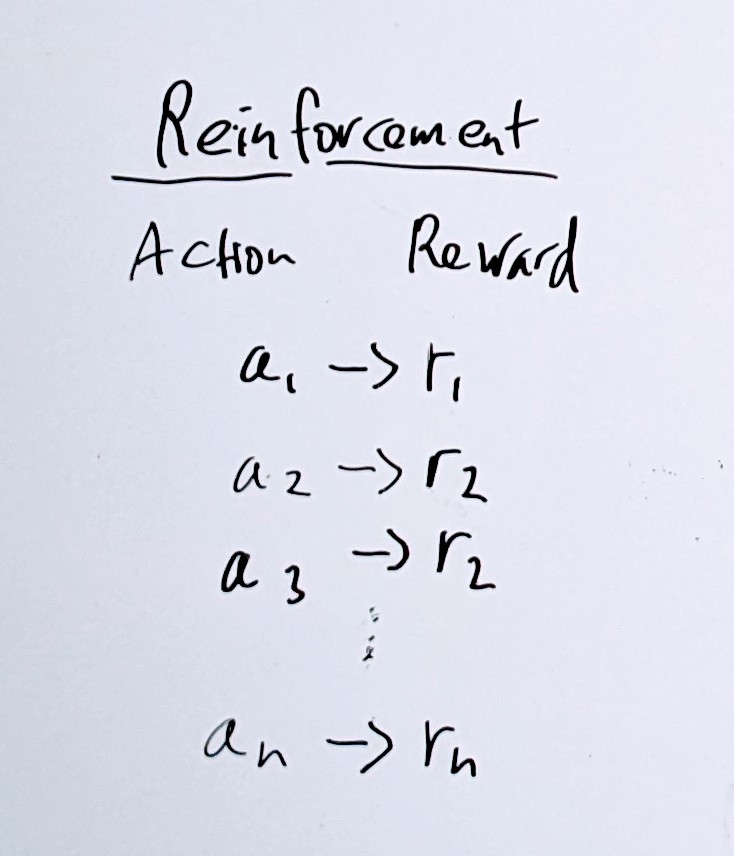 Reinforcement
Action Reward
a₁ -> r₁
a₂ -> r₂
a₃ -> r₂
⋮
aₙ -> rₙ